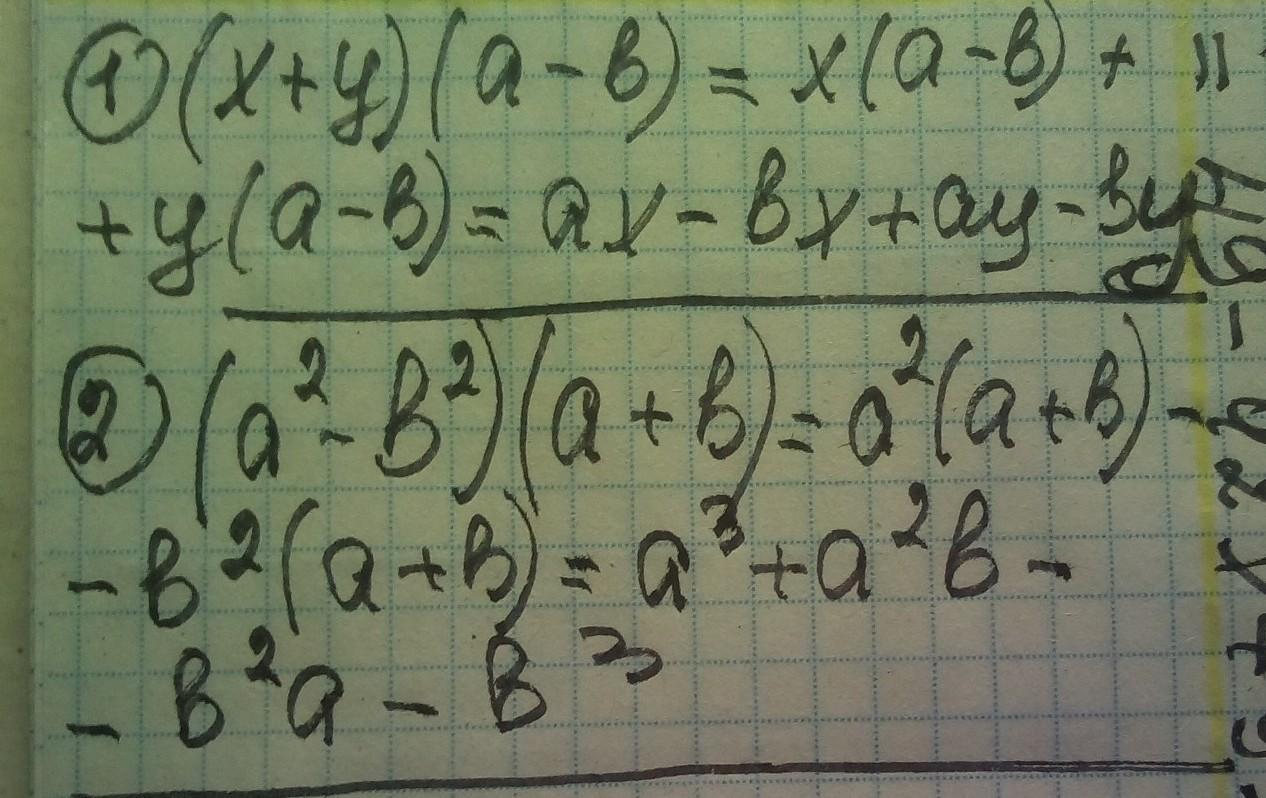 ① (x+y)(a-b) = x(a-b) +
+ y(a-b) = ax - bx + ay - by
② (a² - b²)(a+b) = a²(a+b) -
- b²(a+b) = a³ + a²b -
- b²a - b³